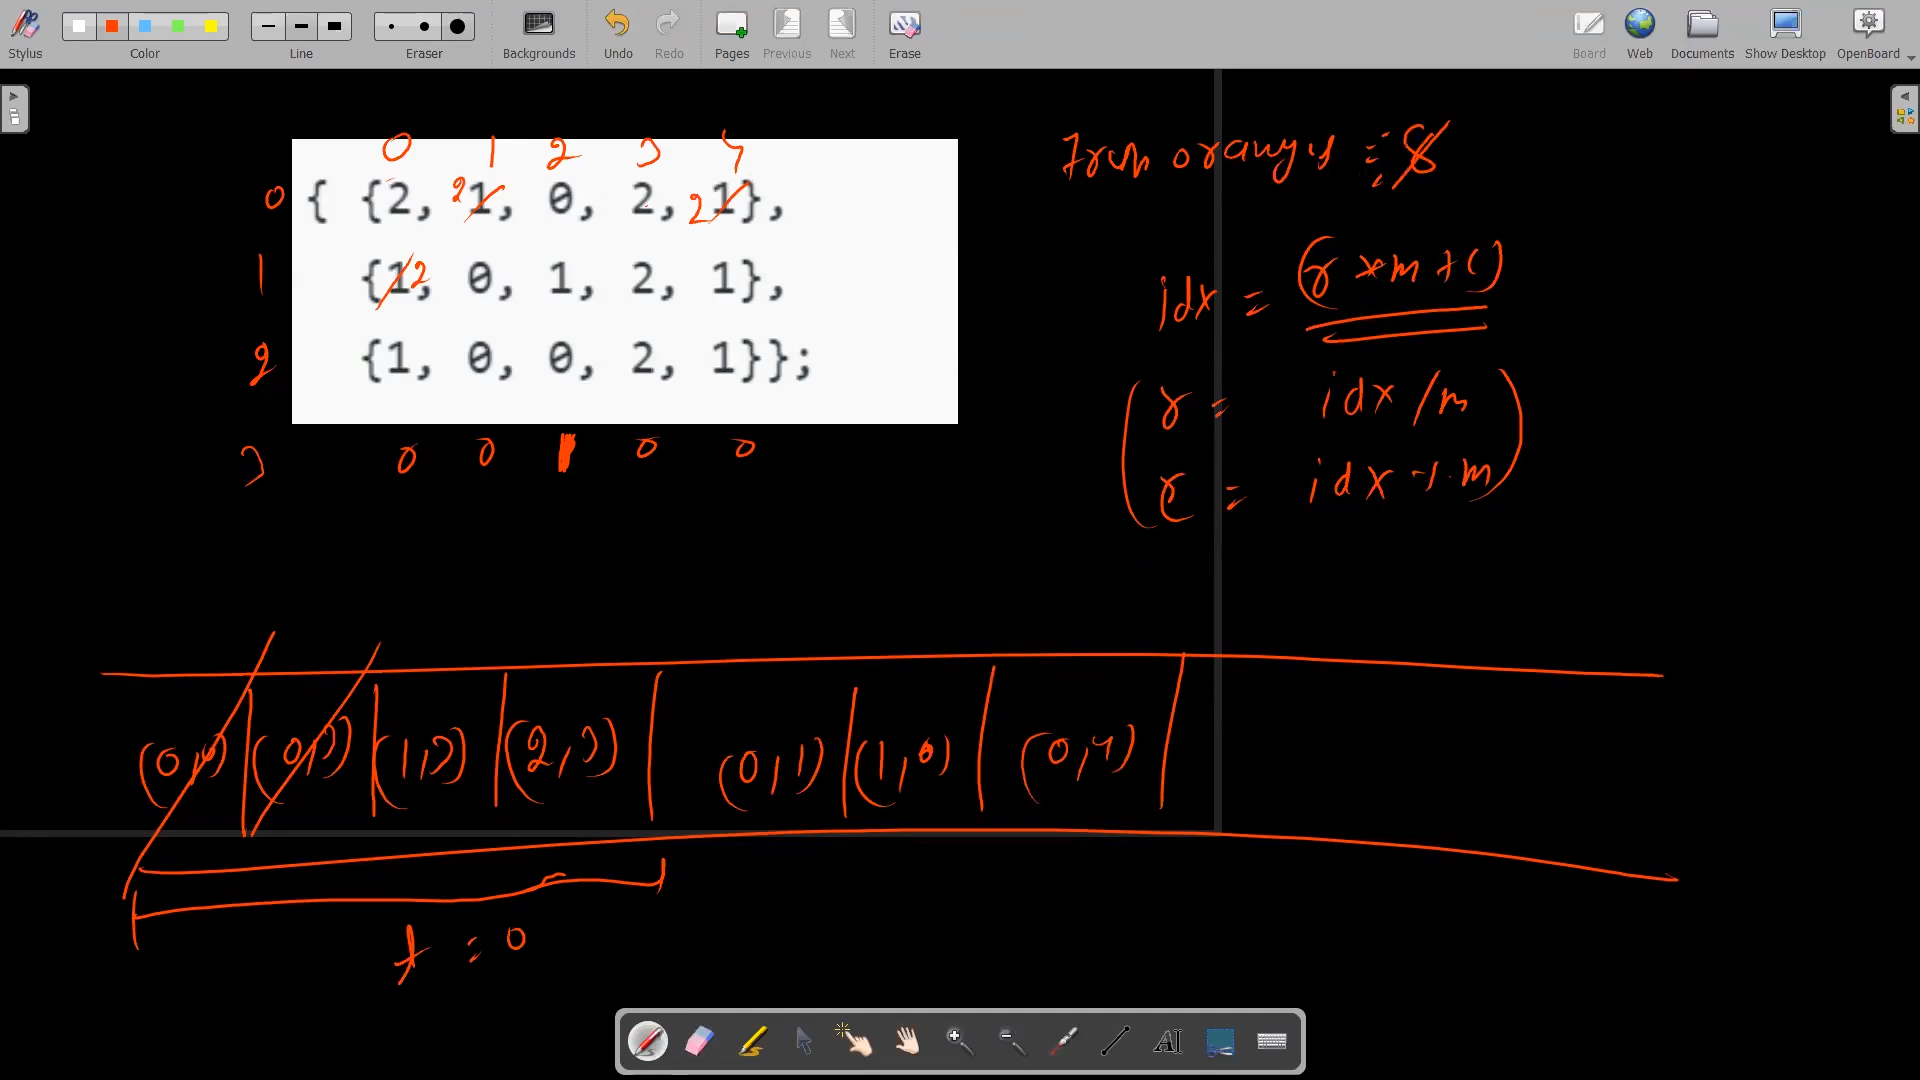 Stylus Color Line Eraser Backgrounds Undo Redo Pages Previous Next Erase Board Web Documents Show Desktop OpenBoard
0 1 2 3 4
0 { {2, 2 1, 0, 2, 2 1},
1 {1, 2 0, 1, 2, 1},
2 {1, 0, 0, 2, 1}};
3 0 0 0 0
Fresh oranges = 8
idx = (r * m + c)
r = idx / m
c = idx % m
(0,0) (0,3) (1,3) (2,3) (0,1) (1,0) (0,4)
t = 0